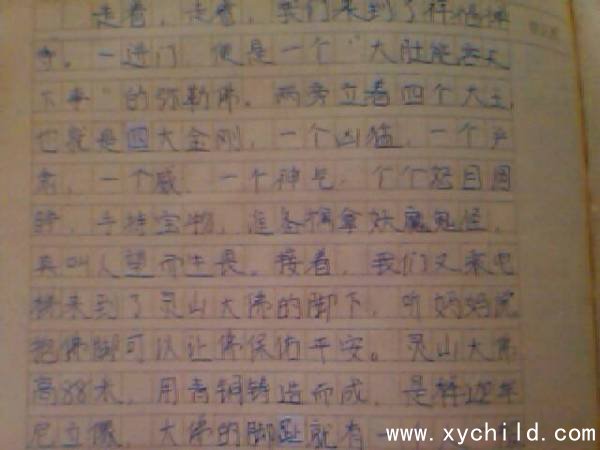 走着，走着，我们来到了祥符禅
寺。一进门，便是一个“大肚能容天
下事”的弥勒佛。两旁立着四个大王，
也就是四大金刚，一个凶猛，一个严
肃，一个威，一个神气，个个怒目圆
睁，手持宝物，准备捉拿妖魔鬼怪，
真叫人望而生畏。接着，我们又乘电
梯来到了灵山大佛的脚下，听妈妈说
抱佛脚可以让佛保佑平安。灵山大佛
高88米，用青铜铸造而成，是释迦牟
尼立像，大佛的脚趾就有一个
www.xychild.com